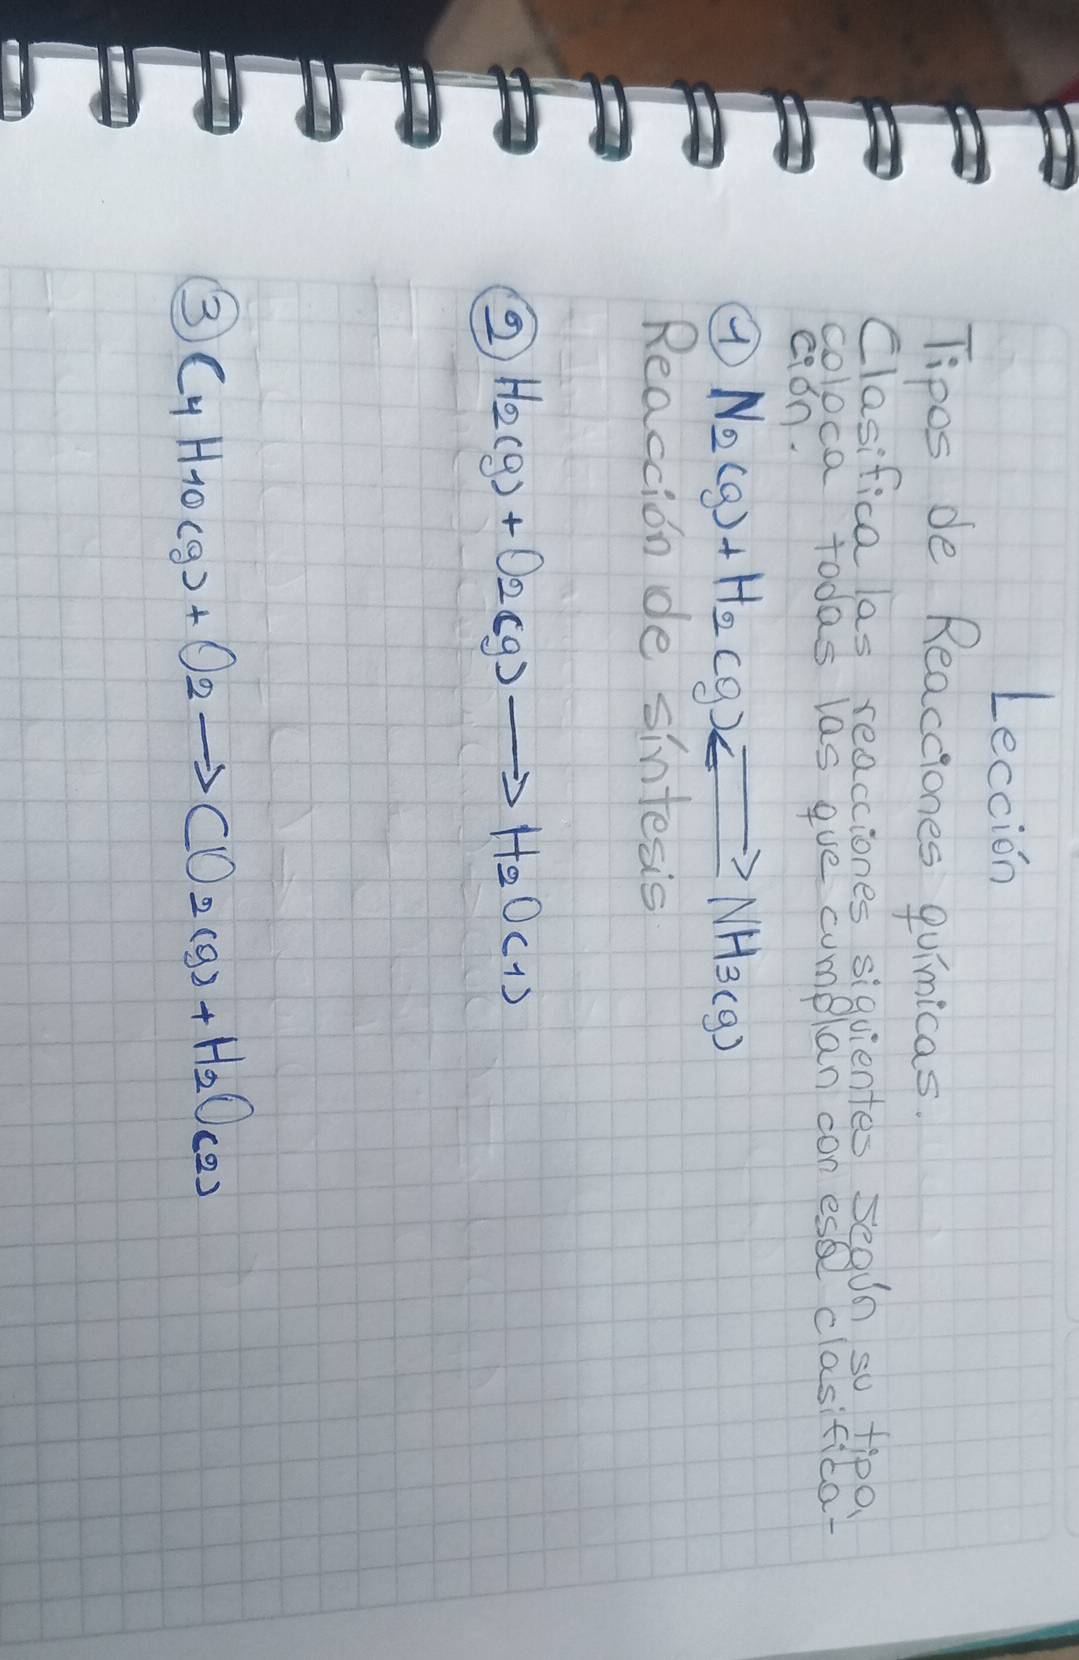 Lección
Tipos de Reacciones químicas.
Clasifica las reacciones siguientes según su tipo,
coloca todas las que cumplan con esa clasifica-
ción.
① N2(g)+H2(g)⇄NH3(g)
Reacción de síntesis
② H2(g)+O2(g)→H2O(1)
③ C4H10(g)+O2→CO2(g)+H2O(2)